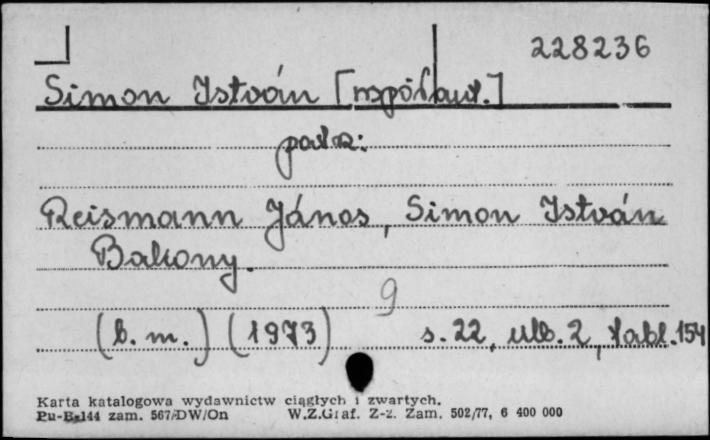 228236
Simon István [współaut.]
patrz:
Reismann János, Simon István
Bakony.
9
(b. m.) (1973) s. 22, ulb. 2, tabl. 154
Karta katalogowa wydawnictw ciągłych i zwartych.
Pu-B-144 zam. 567/DW/On W.Z.Graf. Z-z. Zam. 502/77, 6 400 000